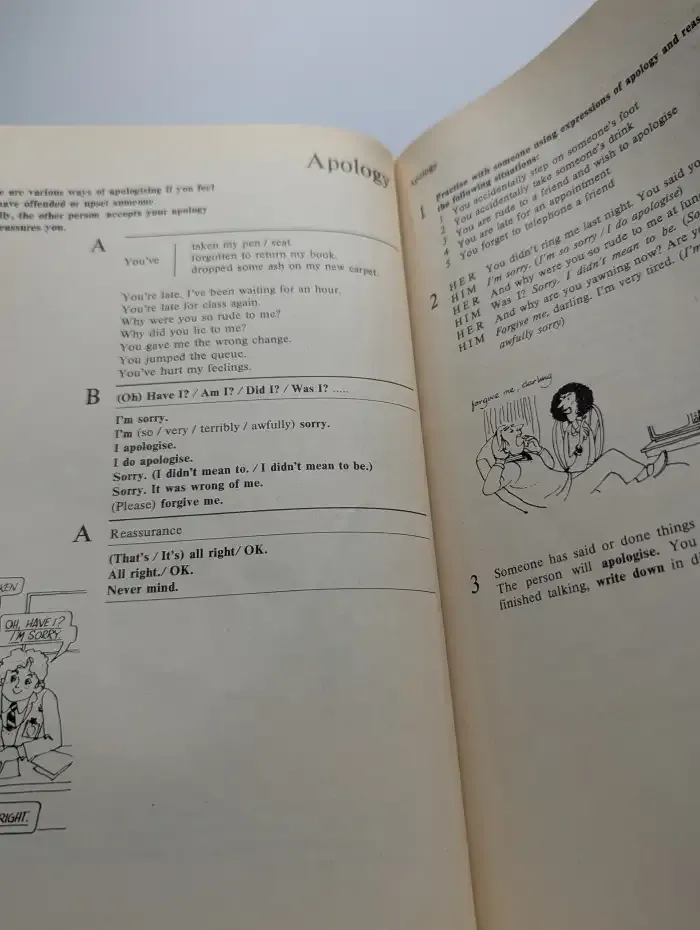 Apology
e are various ways of apologising if you feel
have offended or upset someone
lly, the other person accepts your apology
reassures you.
A
You've
taken my pen / seat.
forgotten to return my book.
dropped some ash on my new carpet.
You're late. I've been waiting for an hour.
You're late for class again.
Why were you so rude to me?
Why did you lie to me?
You gave me the wrong change.
You jumped the queue.
You've hurt my feelings.
B (Oh) Have I? / Am I? / Did I? / Was I? .....
I'm sorry.
I'm (so / very / terribly / awfully) sorry.
I apologise.
I do apologise.
Sorry. (I didn't mean to. / I didn't mean to be.)
Sorry. It was wrong of me.
(Please) forgive me.
A Reassurance
(That's / It's) all right/ OK.
All right./ OK.
Never mind.
KEN
OH, HAVE I?
I'M SORRY.
RIGHT.
Apology
1 Practise with someone using expressions of apology and reas
the following situations:
1 You accidentally step on someone's foot
2 You accidentally take someone's drink
3 You are rude to a friend and wish to apologise
4 You are late for an appointment
5 You forget to telephone a friend
2 HER You didn't ring me last night. You said yo
HIM I'm sorry. (I'm so sorry / I do apologise)
HER And why were you so rude to me at lun
HIM Was I? Sorry. I didn't mean to be. (So
HER And why are you yawning now? Are y
HIM Forgive me, darling. I'm very tired. (I'm
awfully sorry)
forgive me, darling
3 Someone has said or done things
The person will apologise. You
finished talking, write down in d